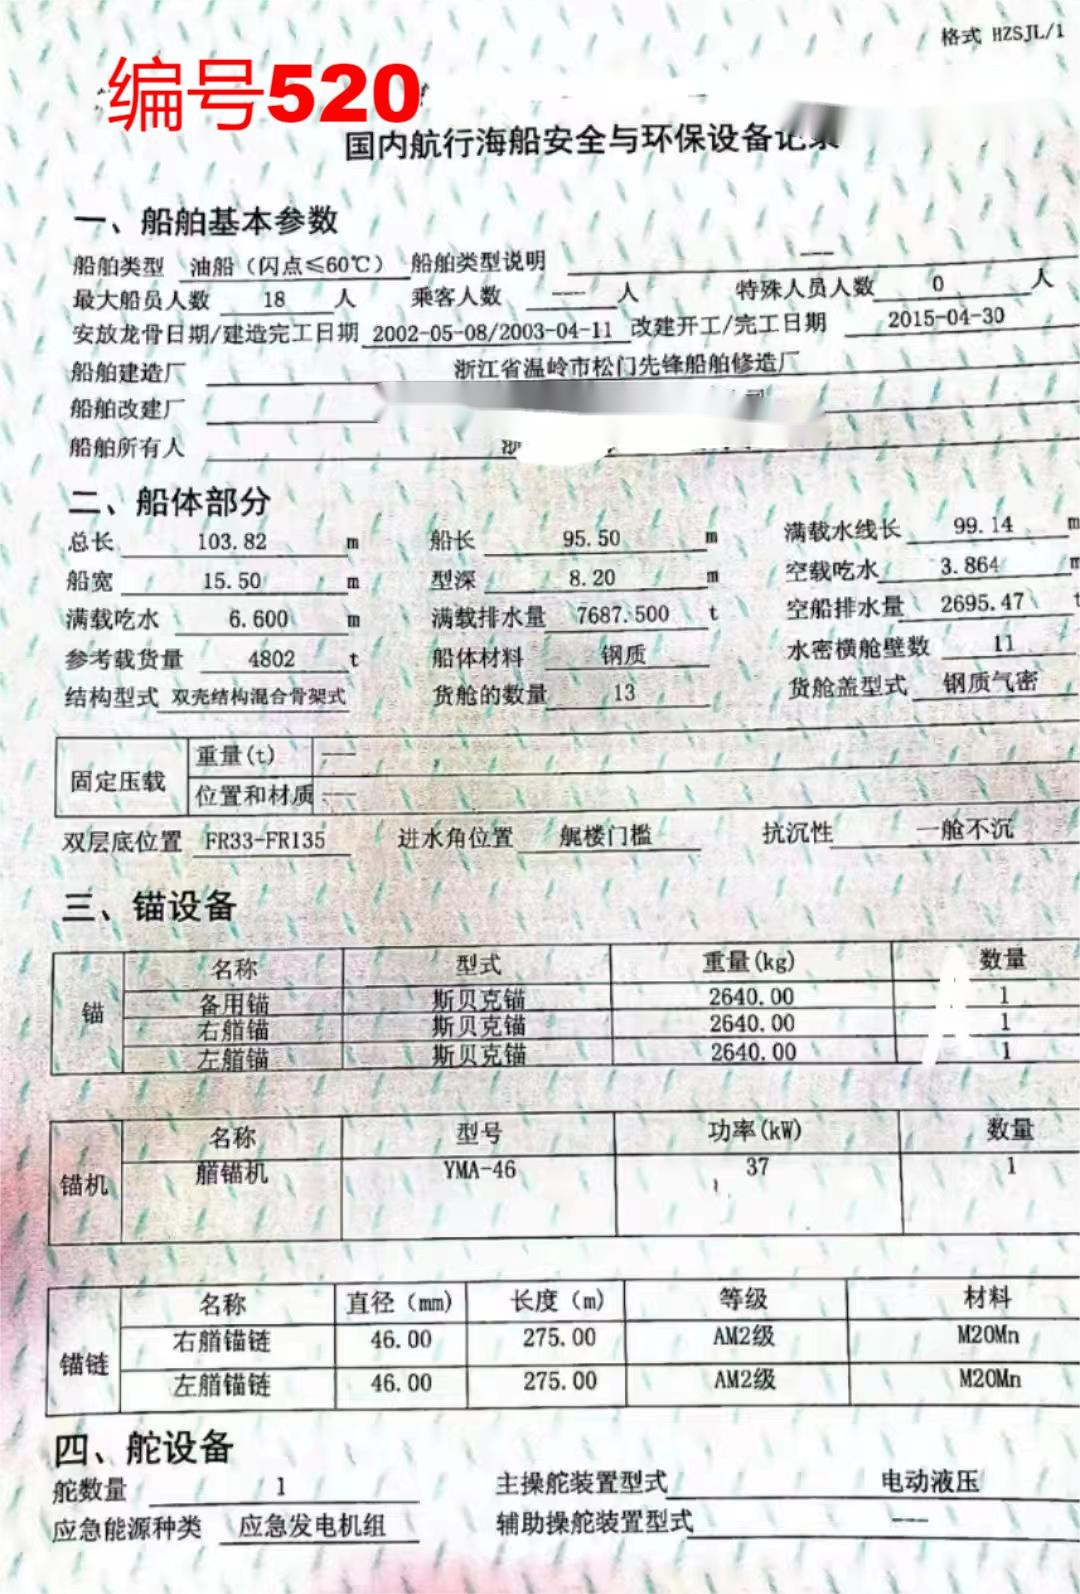 格式 HZSJL/1
编号520
国内航行海船安全与环保设备记录
一、船舶基本参数
船舶类型 油船（闪点≤60℃） 船舶类型说明 ---
最大船员人数 18 人 乘客人数 --- 人 特殊人员人数 0 人
安放龙骨日期/建造完工日期 2002-05-08/2003-04-11 改建开工/完工日期 2015-04-30
船舶建造厂 浙江省温岭市松门先锋船舶修造厂
船舶改建厂
船舶所有人 浙
二、船体部分
总长 103.82 m 船长 95.50 m 满载水线长 99.14 m
船宽 15.50 m 型深 8.20 m 空载吃水 3.864 m
满载吃水 6.600 m 满载排水量 7687.500 t 空船排水量 2695.47 t
参考载货量 4802 t 船体材料 钢质 水密横舱壁数 11
结构型式 双壳结构混合骨架式 货舱的数量 13 货舱盖型式 钢质气密
固定压载 重量(t) ---
位置和材质 ---
双层底位置 FR33-FR135 进水角位置 艉楼门槛 抗沉性 一舱不沉
三、锚设备
锚 名称 型式 重量(kg) 数量
备用锚 斯贝克锚 2640.00 1
右艏锚 斯贝克锚 2640.00 1
左艏锚 斯贝克锚 2640.00 1
锚机 名称 型号 功率(kW) 数量
艏锚机 YMA-46 37 1
锚链 名称 直径（mm) 长度（m) 等级 材料
右艏锚链 46.00 275.00 AM2级 M20Mn
左艏锚链 46.00 275.00 AM2级 M20Mn
四、舵设备
舵数量 1 主操舵装置型式 电动液压
应急能源种类 应急发电机组 辅助操舵装置型式 ---